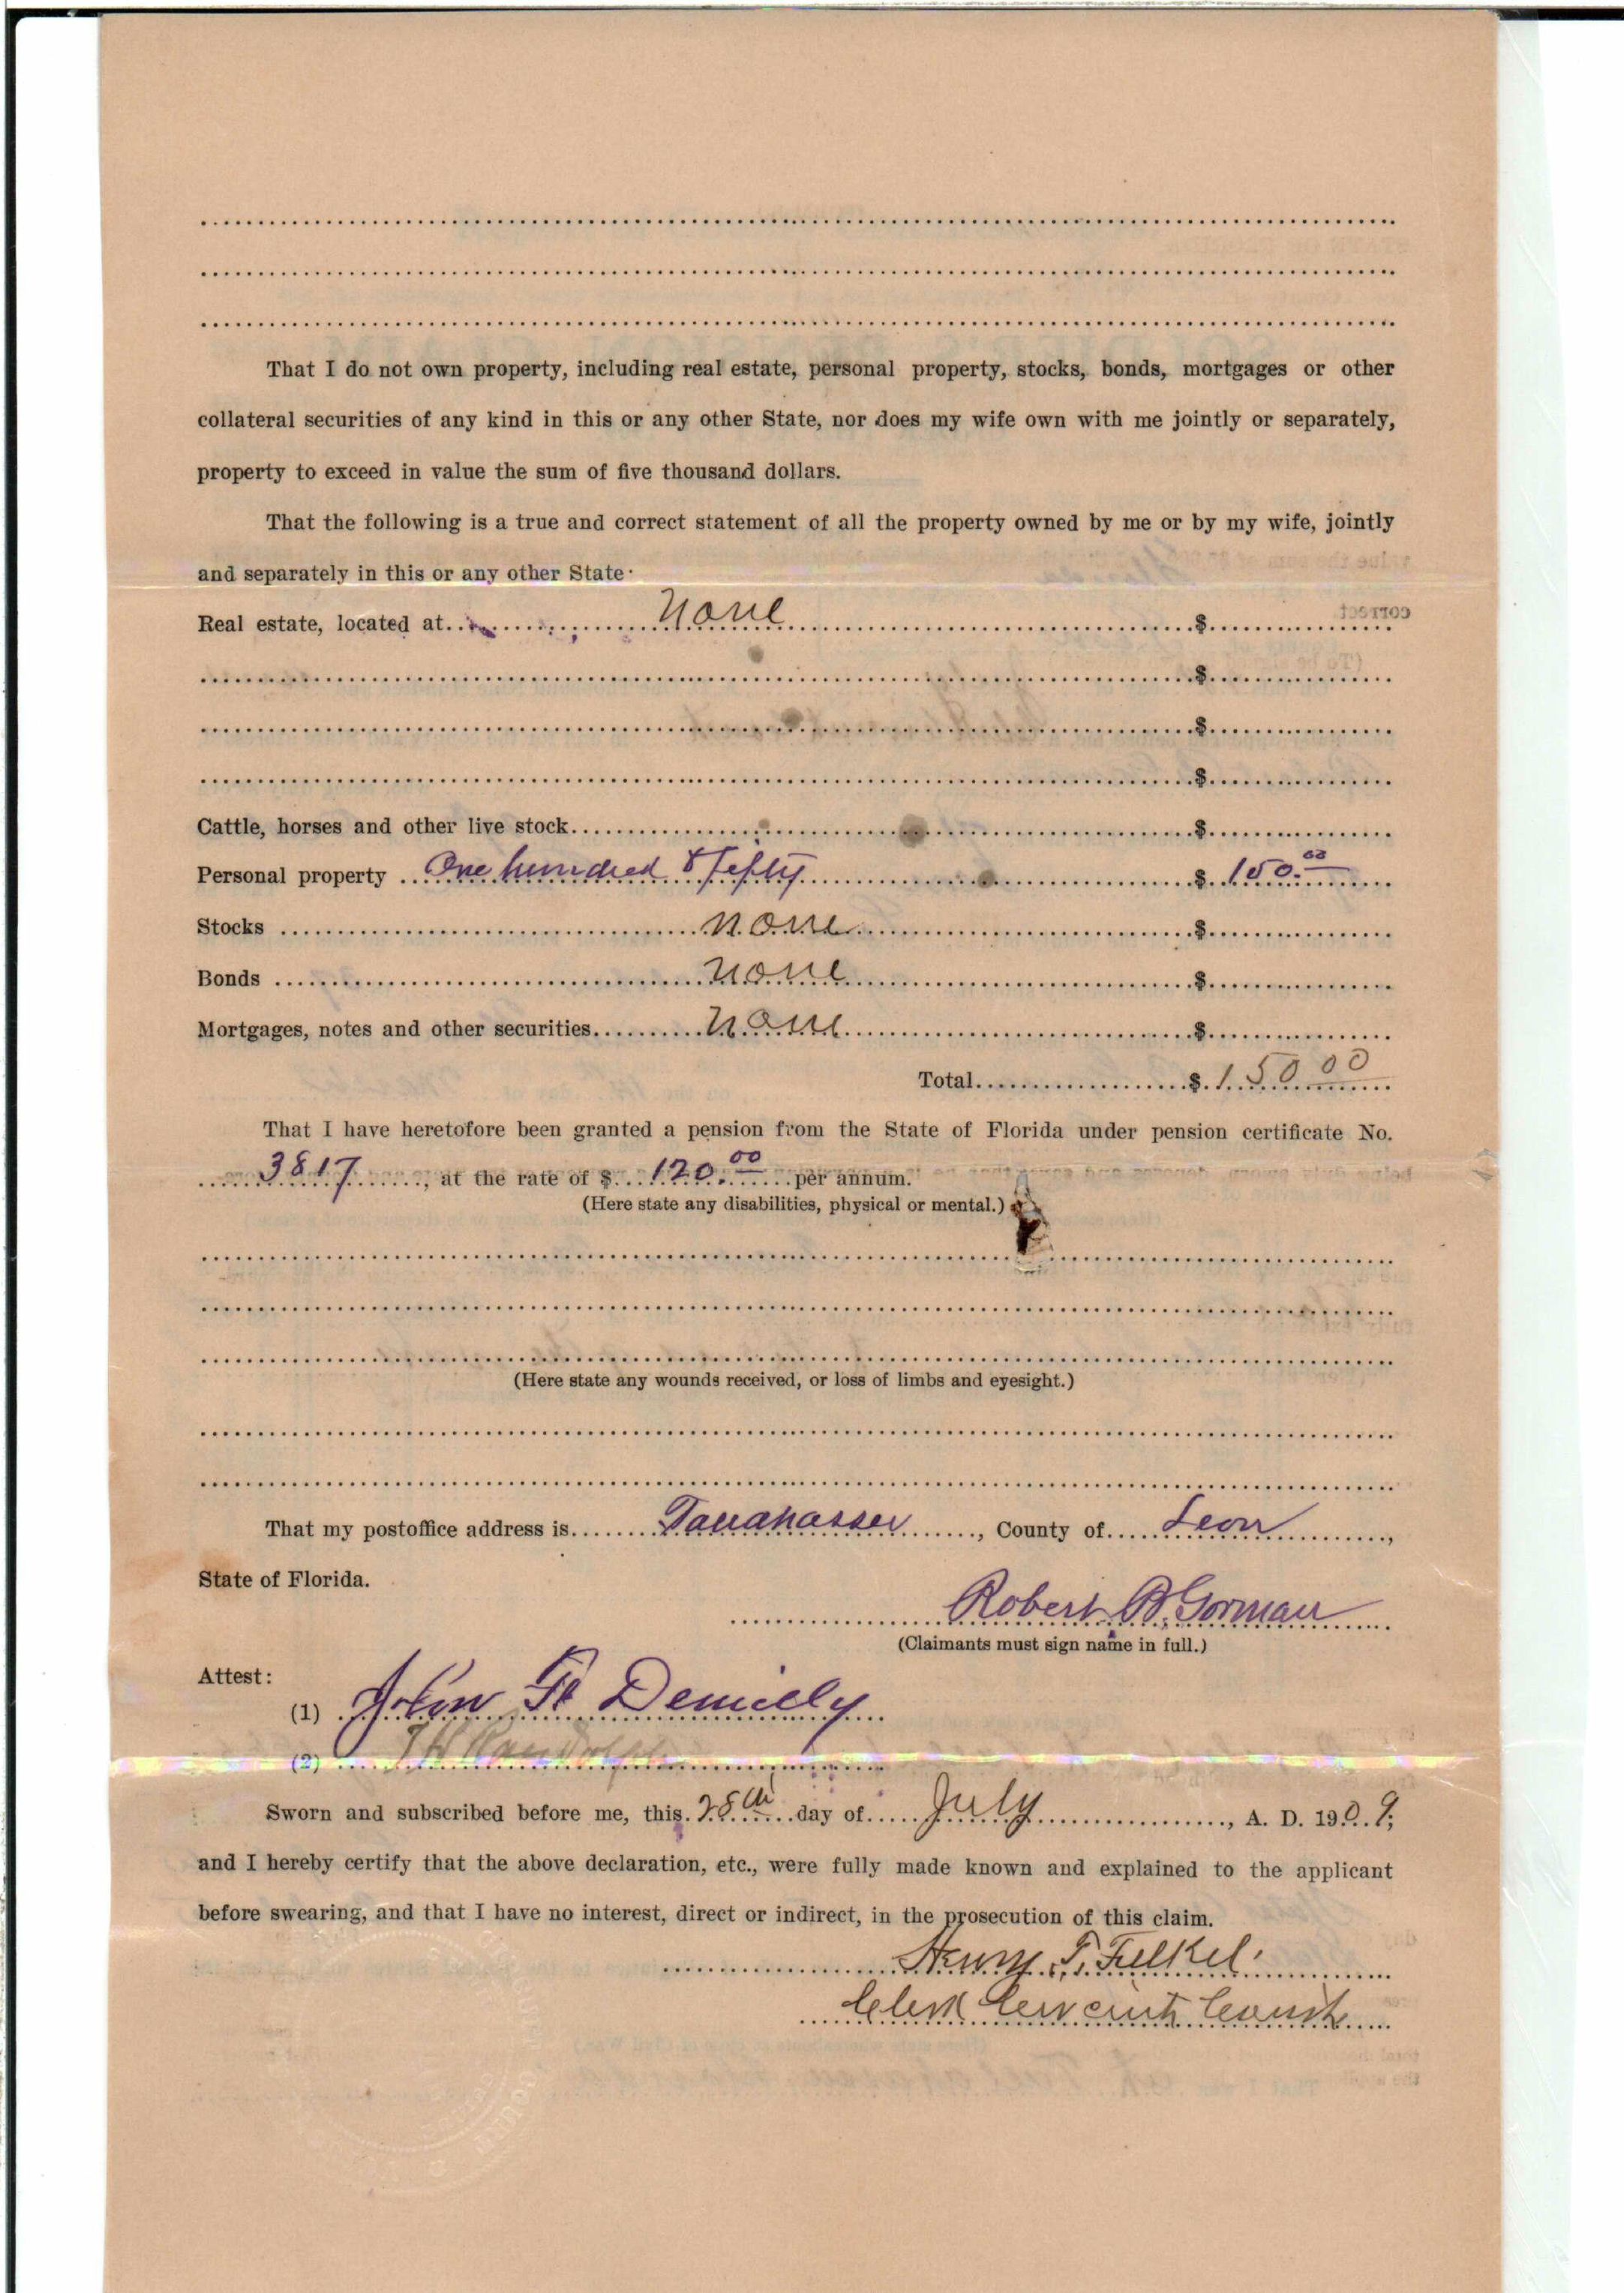 That I do not own property, including real estate, personal property, stocks, bonds, mortgages or other
collateral securities of any kind in this or any other State, nor does my wife own with me jointly or separately,
property to exceed in value the sum of five thousand dollars.
That the following is a true and correct statement of all the property owned by me or by my wife, jointly
and separately in this or any other State·
Real estate, located at None $
$
$
$
Cattle, horses and other live stock $
Personal property One hundred & fifty $ 150.00
Stocks none $
Bonds none $
Mortgages, notes and other securities none $
Total $ 150 00
That I have heretofore been granted a pension from the State of Florida under pension certificate No.
3817, at the rate of $ 120.00 per annum.
(Here state any disabilities, physical or mental.)
(Here state any wounds received, or loss of limbs and eyesight.)
That my postoffice address is Tallahassee, County of Leon,
State of Florida.
Robert B. Gorman
(Claimants must sign name in full.)
Attest:
(1) John Demilly
(2) Randolph
Sworn and subscribed before me, this 28th day of July, A. D. 1909;
and I hereby certify that the above declaration, etc., were fully made known and explained to the applicant
before swearing, and that I have no interest, direct or indirect, in the prosecution of this claim.
Henry T. Felkel.
Clerk Circuit Court